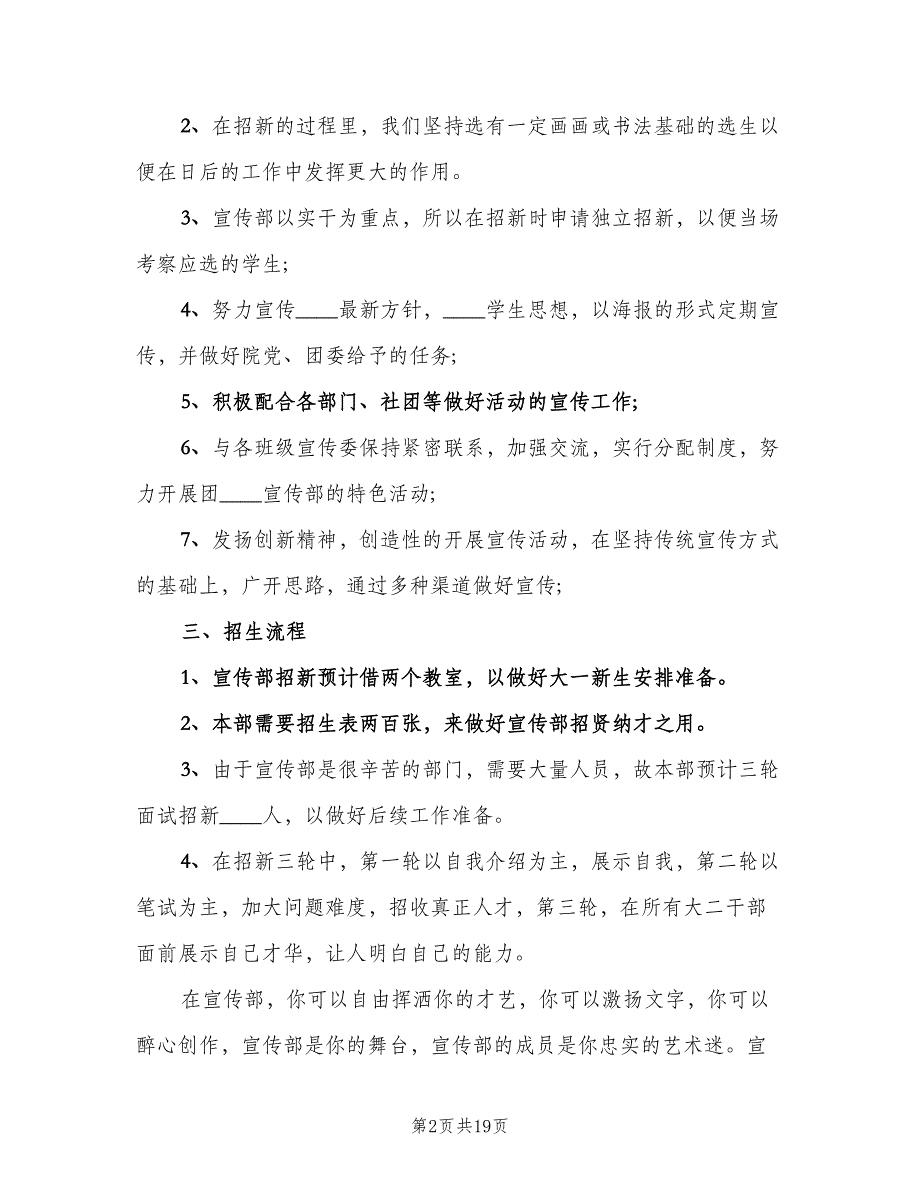 2、在招新的过程里，我们坚持选有一定画画或书法基础的选生以
便在日后的工作中发挥更大的作用。
3、宣传部以实干为重点，所以在招新时申请独立招新，以便当场
考察应选的学生;
4、努力宣传____最新方针，____学生思想，以海报的形式定期宣
传，并做好院党、团委给予的任务;
5、积极配合各部门、社团等做好活动的宣传工作;
6、与各班级宣传委保持紧密联系，加强交流，实行分配制度，努
力开展团____宣传部的特色活动;
7、发扬创新精神，创造性的开展宣传活动，在坚持传统宣传方式
的基础上，广开思路，通过多种渠道做好宣传;
三、招生流程
1、宣传部招新预计借两个教室，以做好大一新生安排准备。
2、本部需要招生表两百张，来做好宣传部招贤纳才之用。
3、由于宣传部是很辛苦的部门，需要大量人员，故本部预计三轮
面试招新____人，以做好后续工作准备。
4、在招新三轮中，第一轮以自我介绍为主，展示自我，第二轮以
笔试为主，加大问题难度，招收真正人才，第三轮，在所有大二干部
面前展示自己才华，让人明白自己的能力。
在宣传部，你可以自由挥洒你的才艺，你可以激扬文字，你可以
醉心创作，宣传部是你的舞台，宣传部的成员是你忠实的艺术迷。宣
第2页共19页